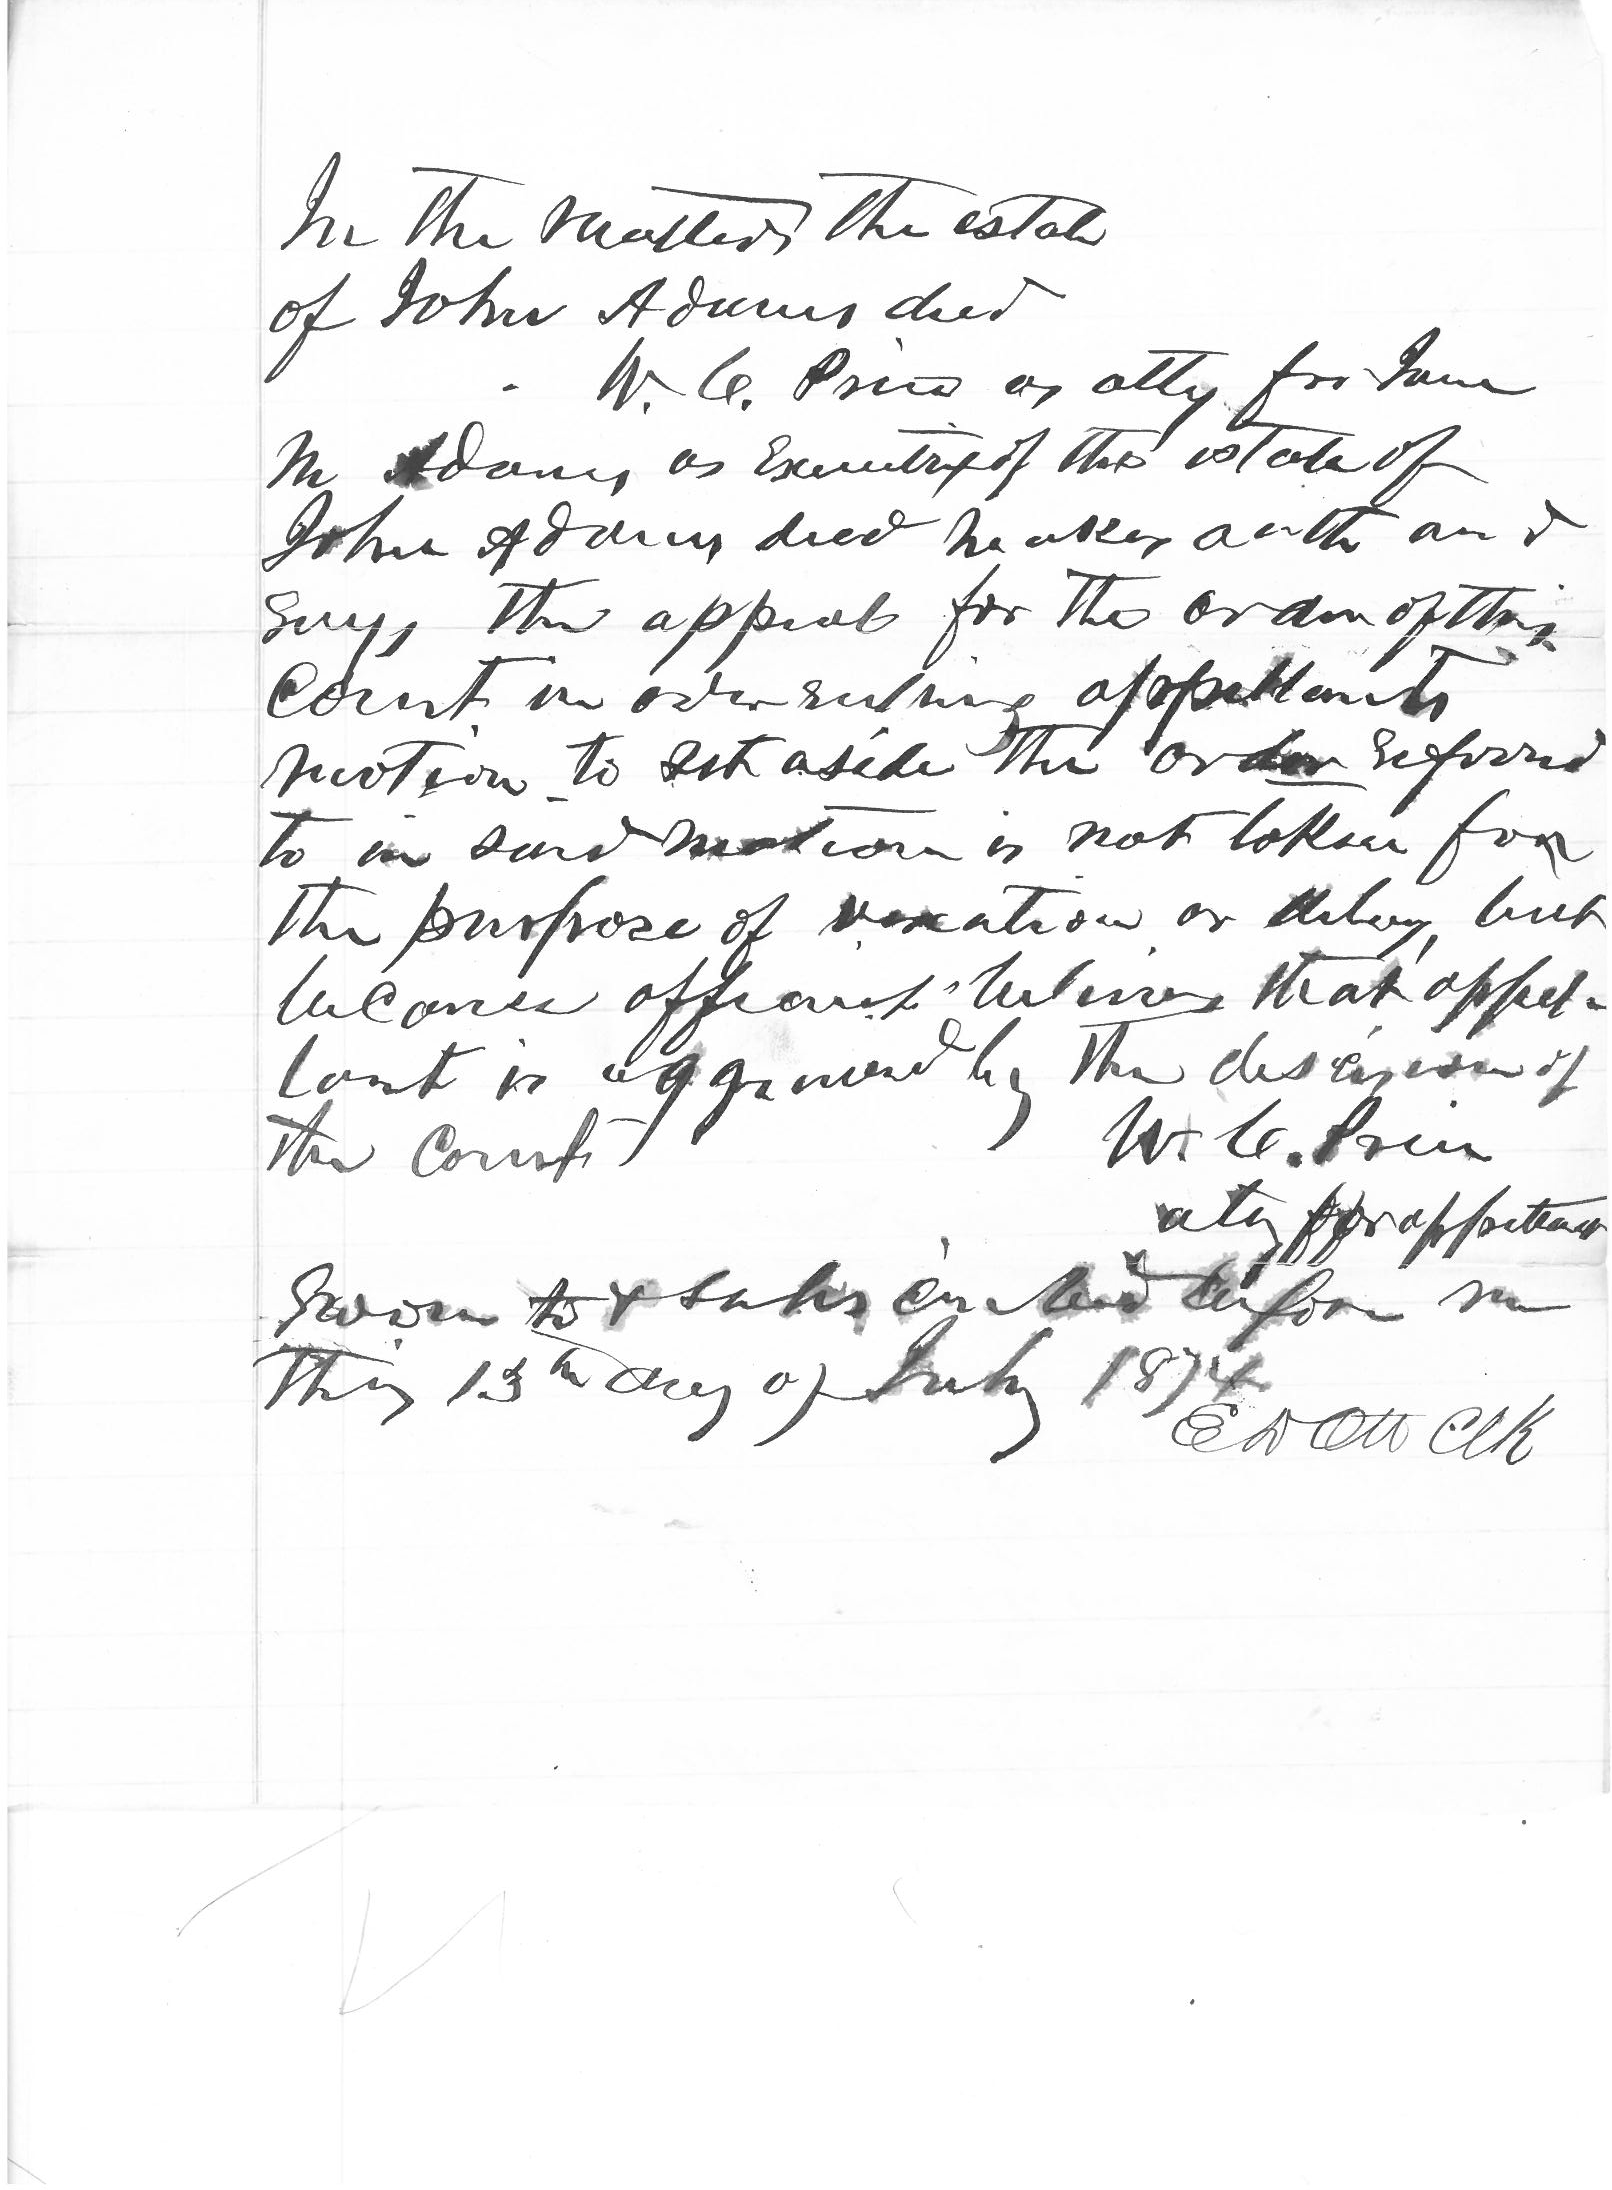 In the matter of the estate
of John Adams decd
W. C. Price as atty for Jane
M Adams as Executrix of the estate of
John Adams decd makes oath and
says the appeal for the order of this
Court in overruling appellants
motion to set aside the order referred
to in said motion is not taken for
the purpose of vexation or delay, but
because affiant believes that appel-
lant is aggrieved by the descision of
the Court
W. C. Price
aty for appellant
Sworn to & subscribed before me
this 13th day of July 1874
E D Ott Clk